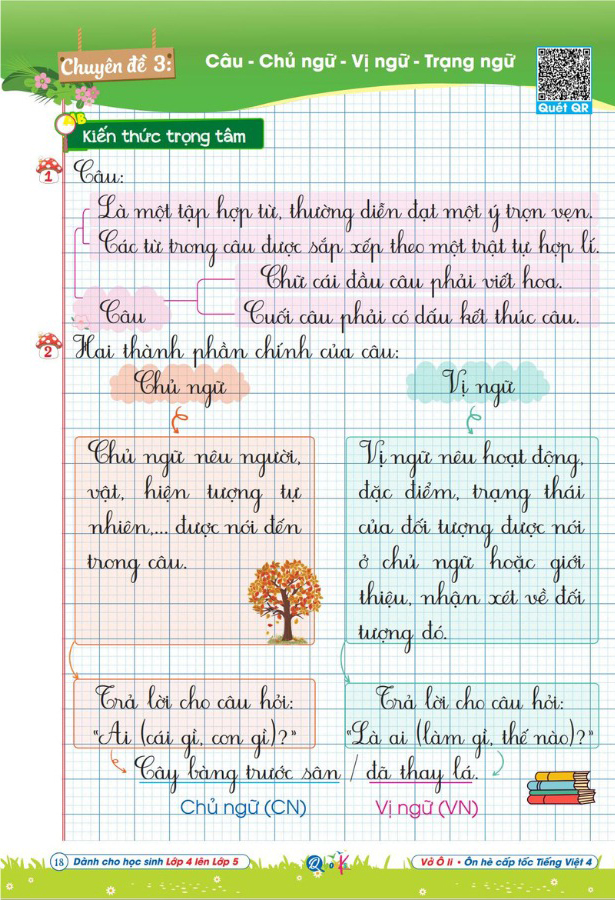 Chuyên đề 3:
Câu - Chủ ngữ - Vị ngữ - Trạng ngữ
Quét QR
Kiến thức trọng tâm
1 Câu:
Là một tập hợp từ, thường diễn đạt một ý trọn vẹn.
Các từ trong câu được sắp xếp theo một trật tự hợp lí.
Chữ cái đầu câu phải viết hoa.
Câu
Cuối câu phải có dấu kết thúc câu.
2 Hai thành phần chính của câu:
Chủ ngữ
Vị ngữ
Chủ ngữ nêu người,
vật, hiện tượng tự
nhiên,... được nói đến
trong câu.
Vị ngữ nêu hoạt động,
đặc điểm, trạng thái
của đối tượng được nói
ở chủ ngữ hoặc giới
thiệu, nhận xét về đối
tượng đó.
Trả lời cho câu hỏi:
"Ai (cái gì, con gì)?"
Trả lời cho câu hỏi:
"Là ai (làm gì, thế nào)?"
Cây bàng trước sân / đã thay lá.
Chủ ngữ (CN)
Vị ngữ (VN)
18 Dành cho học sinh Lớp 4 lên Lớp 5
Vở Ô li • Ôn hè cấp tốc Tiếng Việt 4